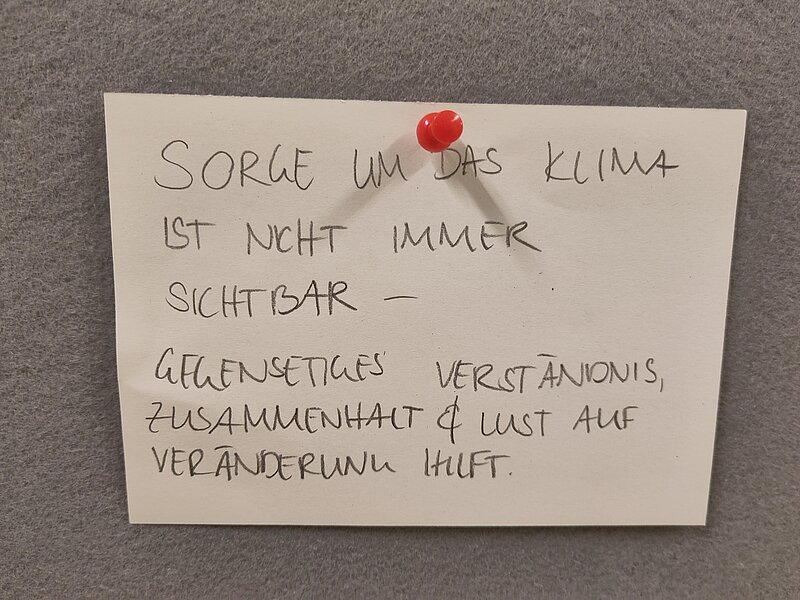 SORGE UM DAS KLIMA
IST NICHT IMMER
SICHTBAR –
GEGENSETIGES VERSTÄNDNIS,
ZUSAMMENHALT & LUST AUF
VERÄNDERUNG HILFT.